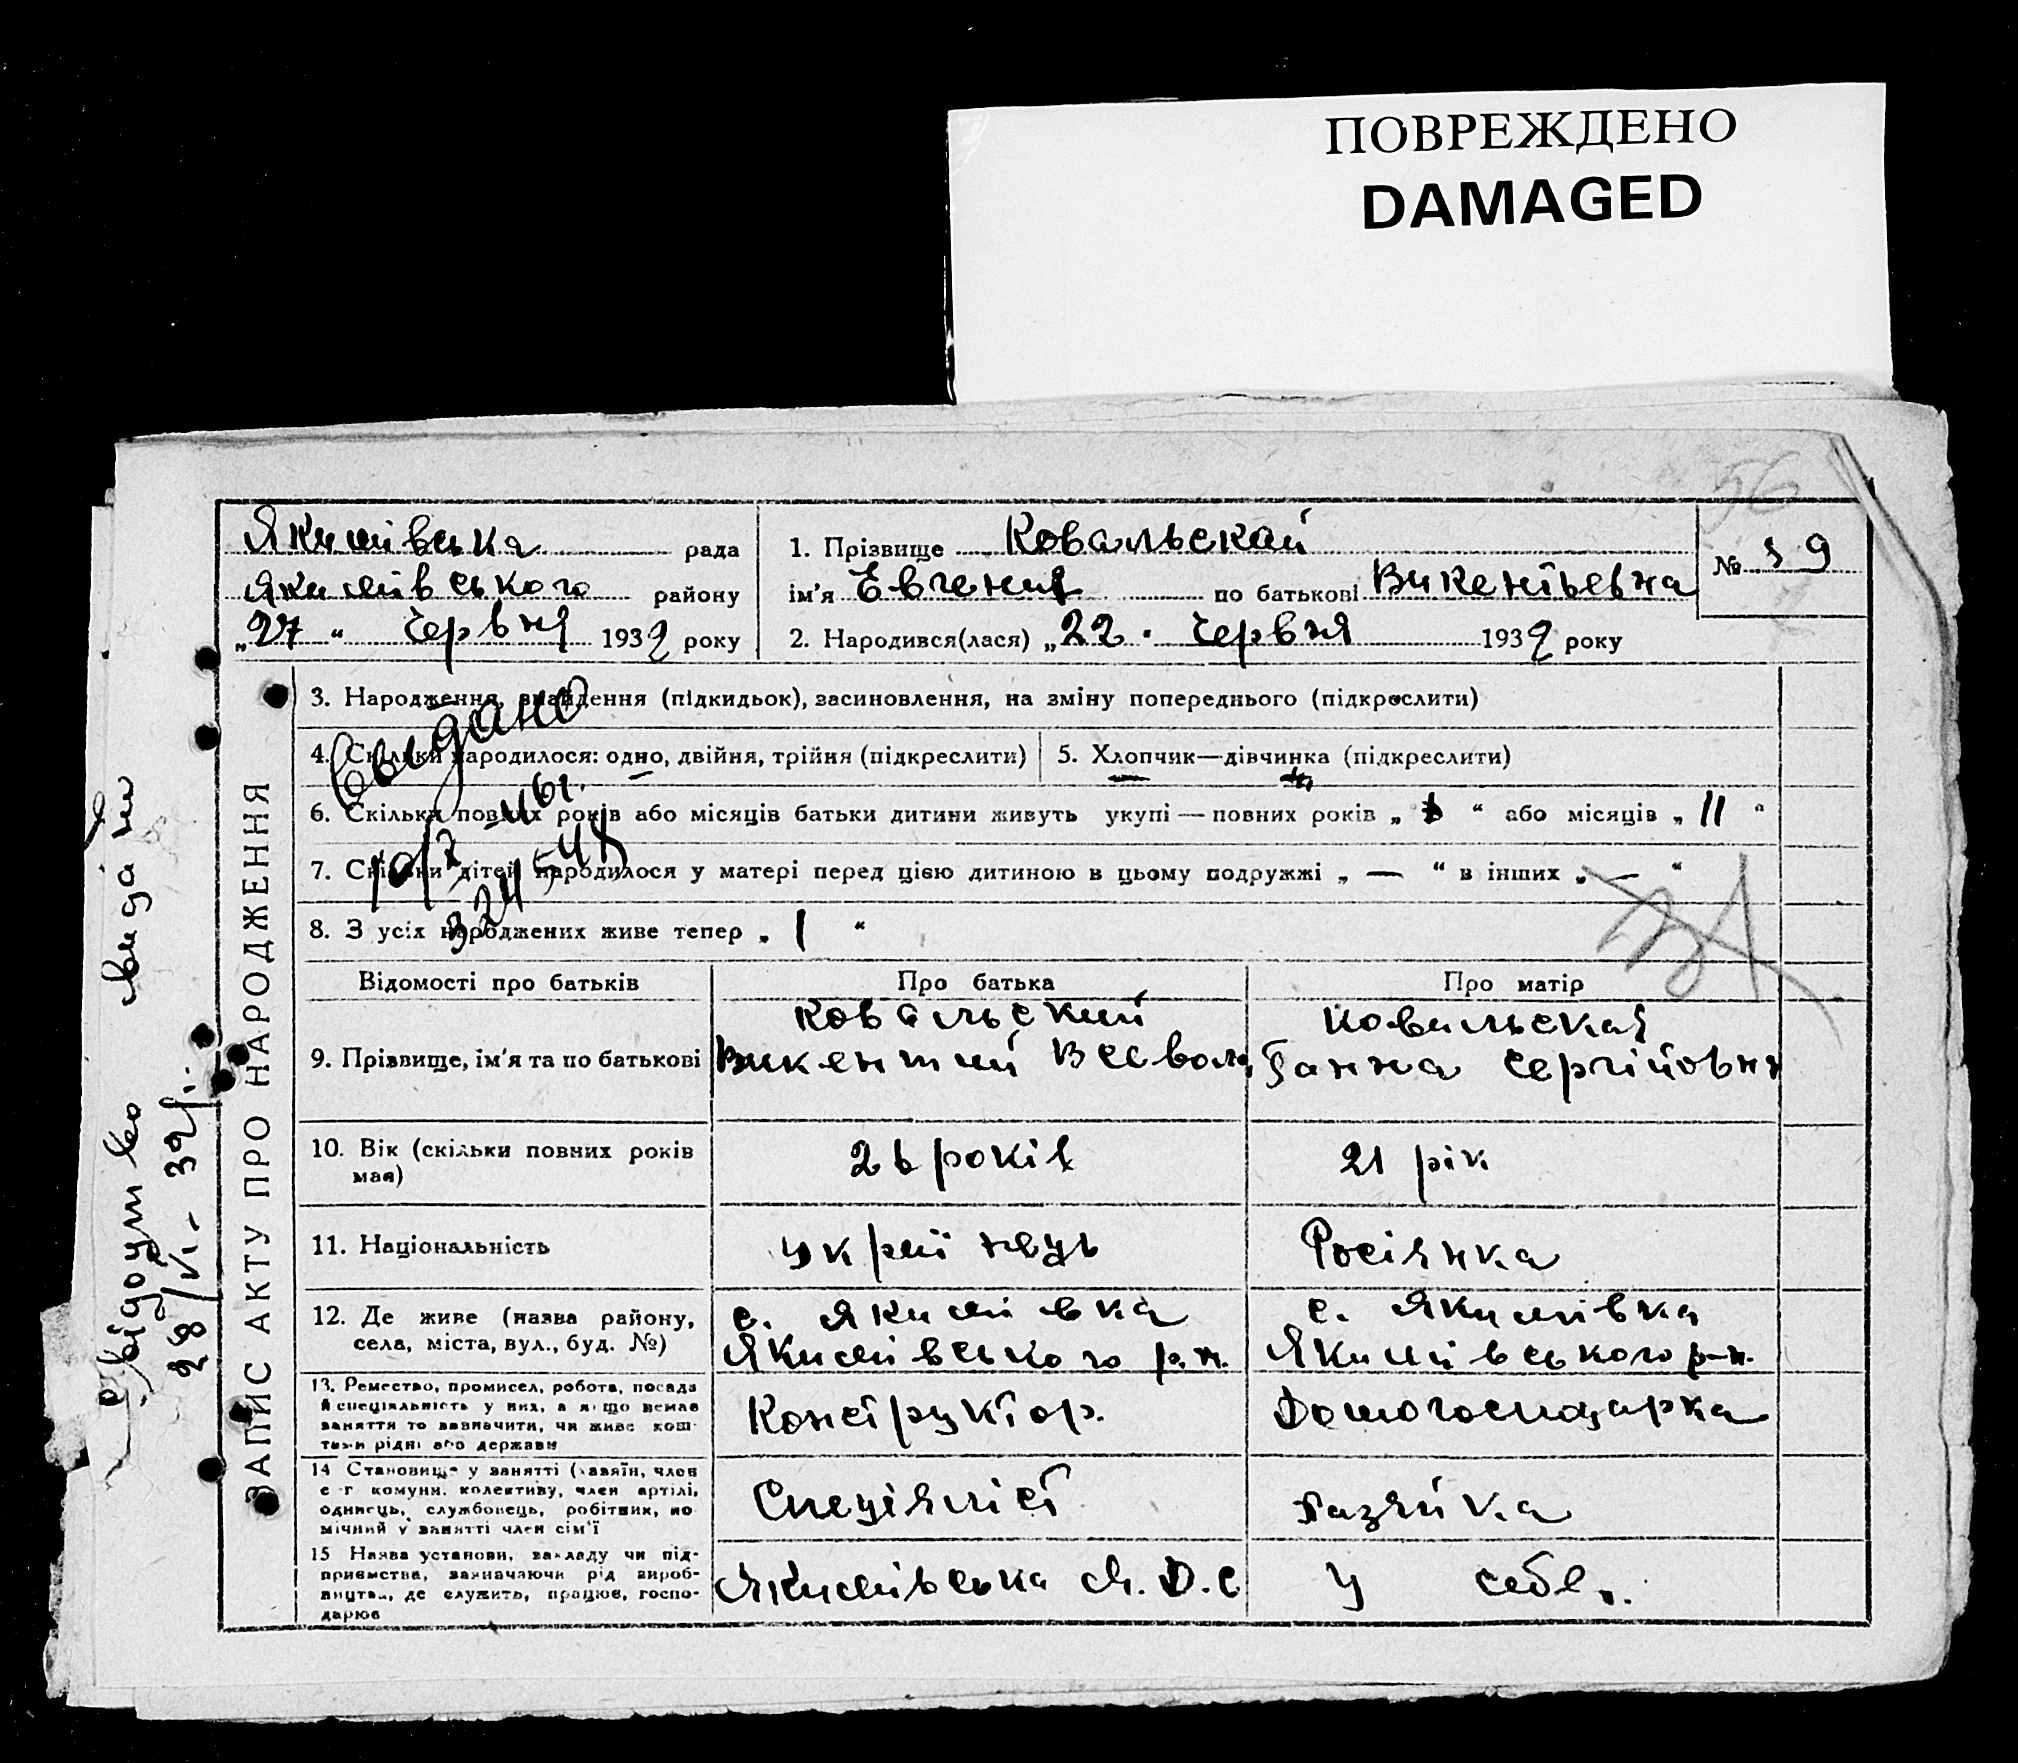 ПОВРЕЖДЕНО
DAMAGED
56
Якимівська рада
Якимівського району
„27“ червня 1939 року
1. Прізвище Ковальскай
ім'я Евгения по батькові Викентьевна
№ 59
2. Народився(лася) „22“ червня 1939 року
ЗАПИС АКТУ ПРО НАРОДЖЕННЯ
3. Народження, знайдення (підкидьок), засиновлення, на зміну попереднього (підкреслити)
4. Скільки народилося: одно, двійня, трійня (підкреслити)
5. Хлопчик—дівчинка (підкреслити)
6. Скільки повних років або місяців батьки дитини живуть укупі — повних років „ “ або місяців „ 11 “
7. Скільки дітей народилося у матері перед цією дитиною в цьому подружжі „ — “ в інших „ — “
8. З усіх народжених живе тепер „ 1 “
Выдано
Відомості про батьків
Про батька
Про матір
9. Прізвище, ім'я та по батькові
Ковальский
Викентий Всевол
Ковальская
Ганна Сергійовна
10. Вік (скільки повних років
має)
26 років
21 рік
11. Національність
Украінець
Росіянка
12. Де живе (назва району,
села, міста, вул., буд. №)
с. Якимівка
Якимівського р.н.
с. Якимівка
Якимівського р-н.
13. Ремество, промисел, робота, посада
й спеціяльність у них, а якщо немає
заняття то зазначити, чи живе кош-
тами рідні або держави
Конструктор.
Домогосподарка
14 Становище у занятті (хазяїн, член
с-г комуни, колективу, член артілі,
одинець, службовець, робітник, по-
мічний у занятті член сім'ї
Спеціяліст
Хазяйка
15 Назва установи, закладу чи під-
приємства, зазначаючи рід вироб-
ництва, де служить, працює, госпо-
дарює
Якимівська М.Д.С
У себе.
Свідоцтво видано
28/VI - 39р.